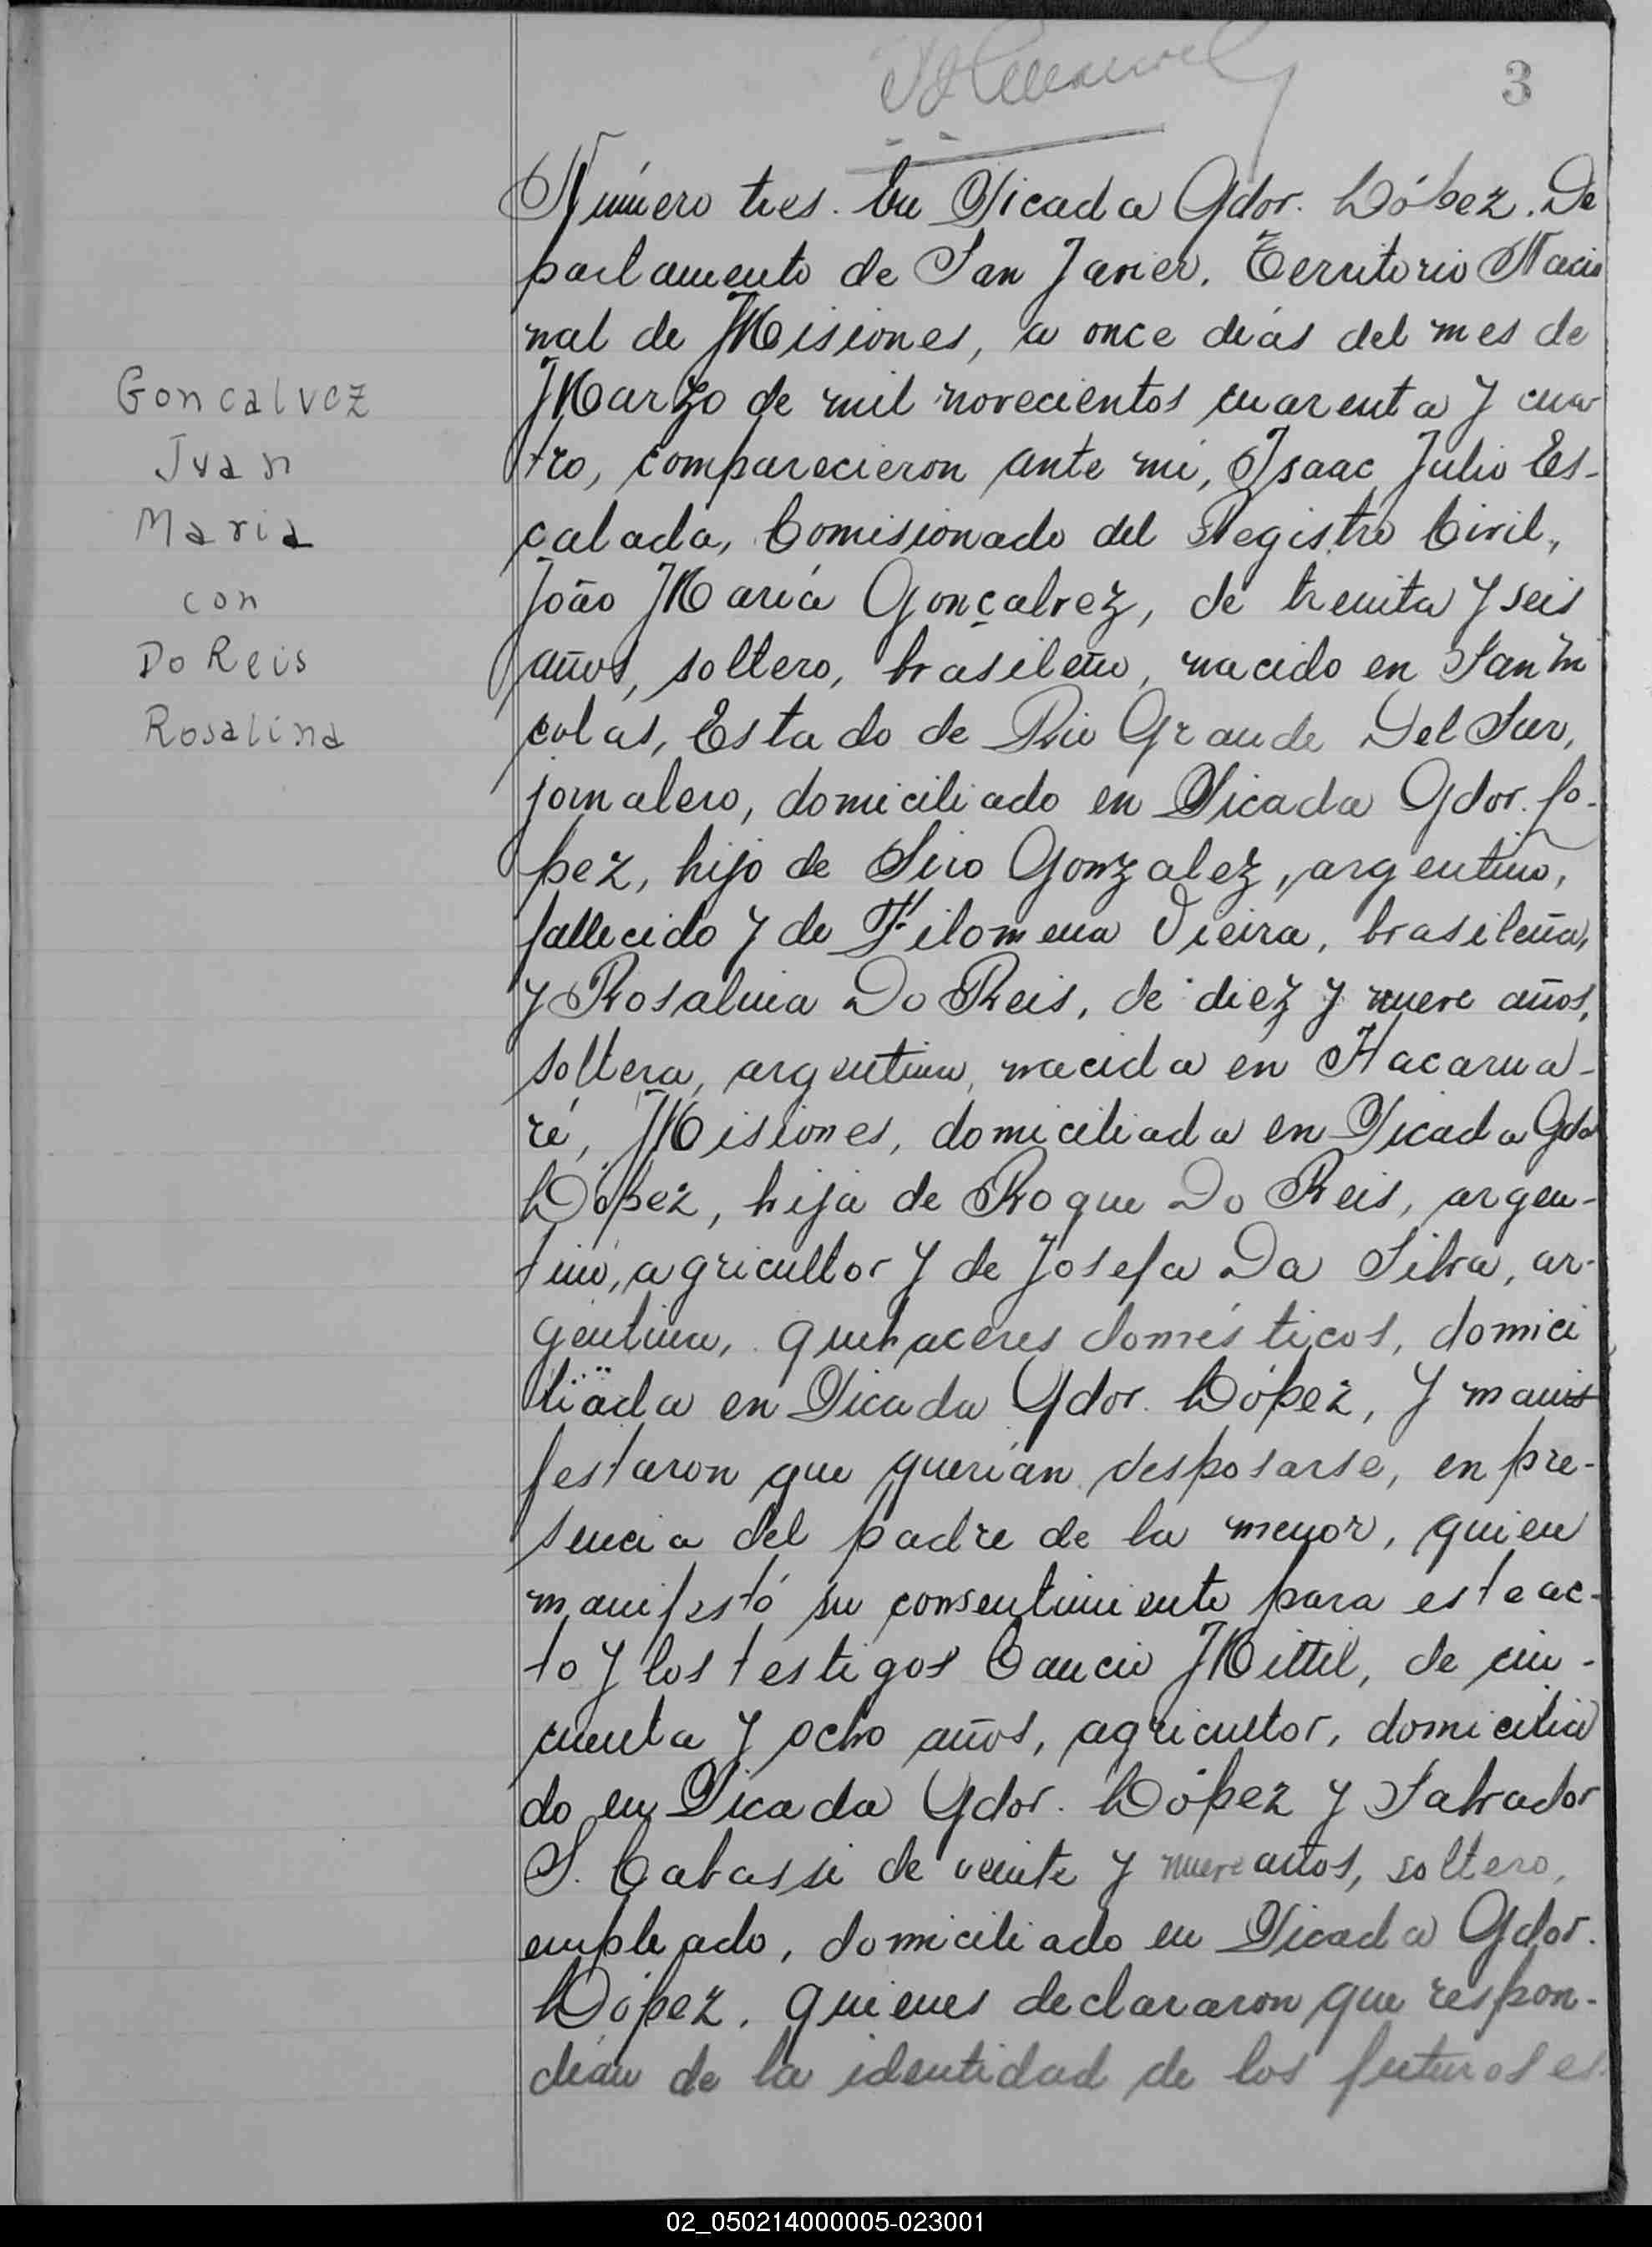 3
Número tres. En Picada Gdor. López. De
partamento de San Javier. Territorio Nacio
nal de Misiones, a once días del mes de
Marzo de mil novecientos cuarenta y cua-
tro, comparecieron ante mi, Isaac Julio Es-
calada, Comisionado del Registro Civil,
João María Gonçalvez, de treinta y seis
años, soltero, brasileño, nacido en San Ni
colas, Estado de Rio Grande Del Sur,
jornalero, domiciliado en Picada Gdor. Lo-
pez, hijo de Siro Gonzalez, argentino,
fallecido y de Filomena Vieira, brasileña,
y Rosalina Do Reis, de diez y nueve años,
soltera, argentina, nacida en Itacarua-
ré, Misiones, domiciliada en Picada Gdor
López, hija de Roque Do Reis, argen-
tino, agricultor y de Josefa Da Silva, ar-
gentina, quehaceres domésticos, domici
liada en Picada Gdor. López, y manis
festaron que querían desposarse, en pre-
sencia del padre de la menor, quien
manifestó su consentimiento para este ac-
to y los testigos Cancio Mittil, de cin-
cuenta y ocho años, agricultor, domicilia
do en Picada Gdor. López y Salvador
S. Cabassi de veinte y nueve años, soltero,
empleado, domiciliado en Picada Gdor.
López, quienes declararon que respon-
dían de la identidad de los futuros es-
Goncalvez
Juan
Maria
con
Do Reis
Rosalina
02_050214000005-023001